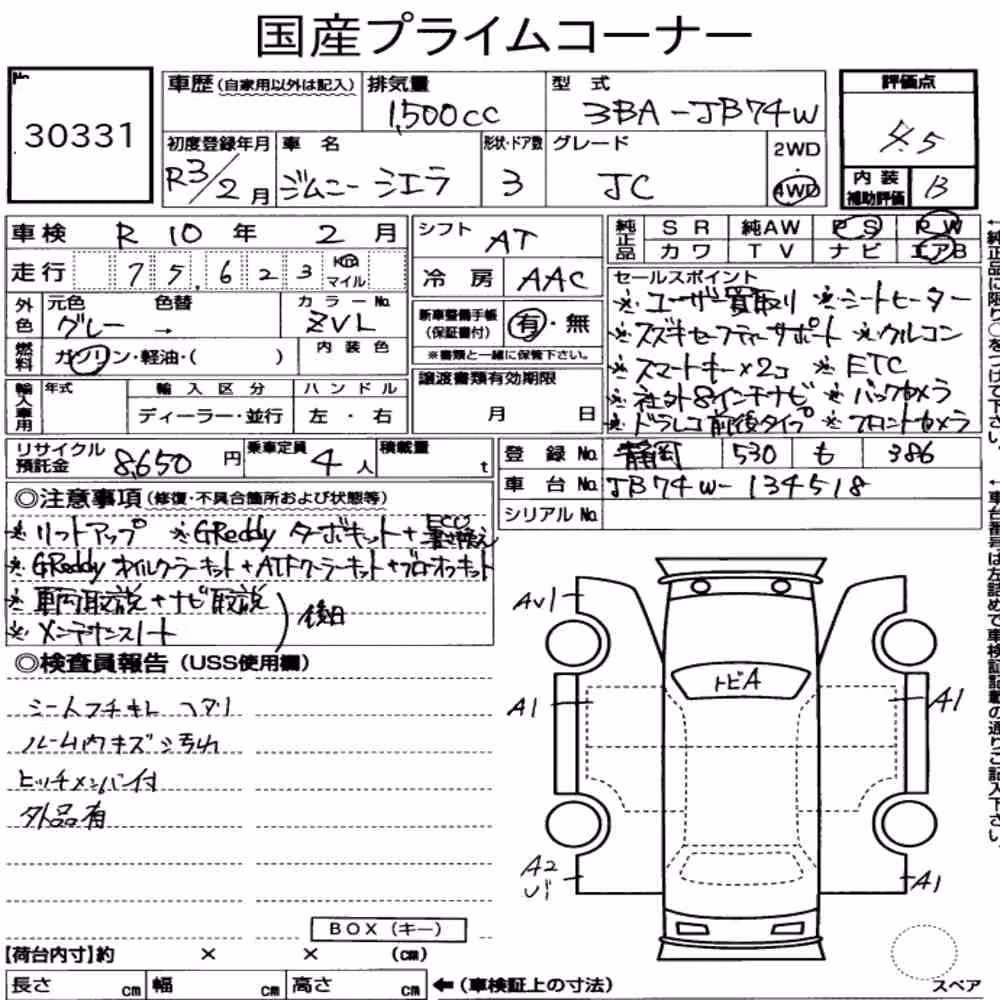 国産プライムコーナー
No.
30331
車歴(自家用以外は記入)
排気量
1,500cc
型 式
3BA-JB74W
評価点
4.5
初度登録年月
R3/2月
車 名
ジムニー シエラ
形状・ドア数
3
グレード
JC
2WD
4WD
内 装
補助評価
B
車検 R 10 年 2 月
シフト AT
純正品
SR 純AW PS PW
カワ TV ナビ エアB
走行 7 5,6 2 3 Km マイル
冷 房 AAC
外色
元色 色替 カラーNo.
グレー → ZVL
新車整備手帳
(保証書付)
有・無
※書類と一緒に保管下さい。
燃料
ガソリン・軽油・( )
内 装 色
輸入車用
年式 輸 入 区 分 ハ ン ド ル
ディーラー・並行 左 ・ 右
譲渡書類有効期限
月 日
セールスポイント
※ユーザー買取り ※シートヒーター
※スズキセーフティーサポート ※クルコン
※スマートキー×2コ ※ETC
※社外8インチナビ ※バックカメラ
※ドラレコ前後タイプ ※フロントカメラ
リサイクル
預託金
8,650 円
乗車定員
4 人
積載量
t
登 録 No. 静岡 530 も 386
車 台 No. JB74W-134518
シリアル No.
◎注意事項(修復・不具合箇所および状態等)
※リフトアップ ※GReddy ターボキット+ECO書き換え
※GReddy オイルクーラーキット+ATFクーラーキット+ブローオフキット
※車両取説+ナビ取説
※メンテナンスノート
)後日
◎検査員報告(USS使用欄)
シートフチキレ ヘタリ
ルーム内キズシ汚れ
ヒッチメンバー付
外品有
AV1
トビA
A1
A1
A2
U1
A1
BOX(キー)
【荷台内寸】約 × × (cm)
長さ cm 幅 cm 高さ cm ←(車検証上の寸法)
スペア
←純正品に限り○をつけて下さい。
←車台番号は左詰めで車検証記載の通りご記入下さい。